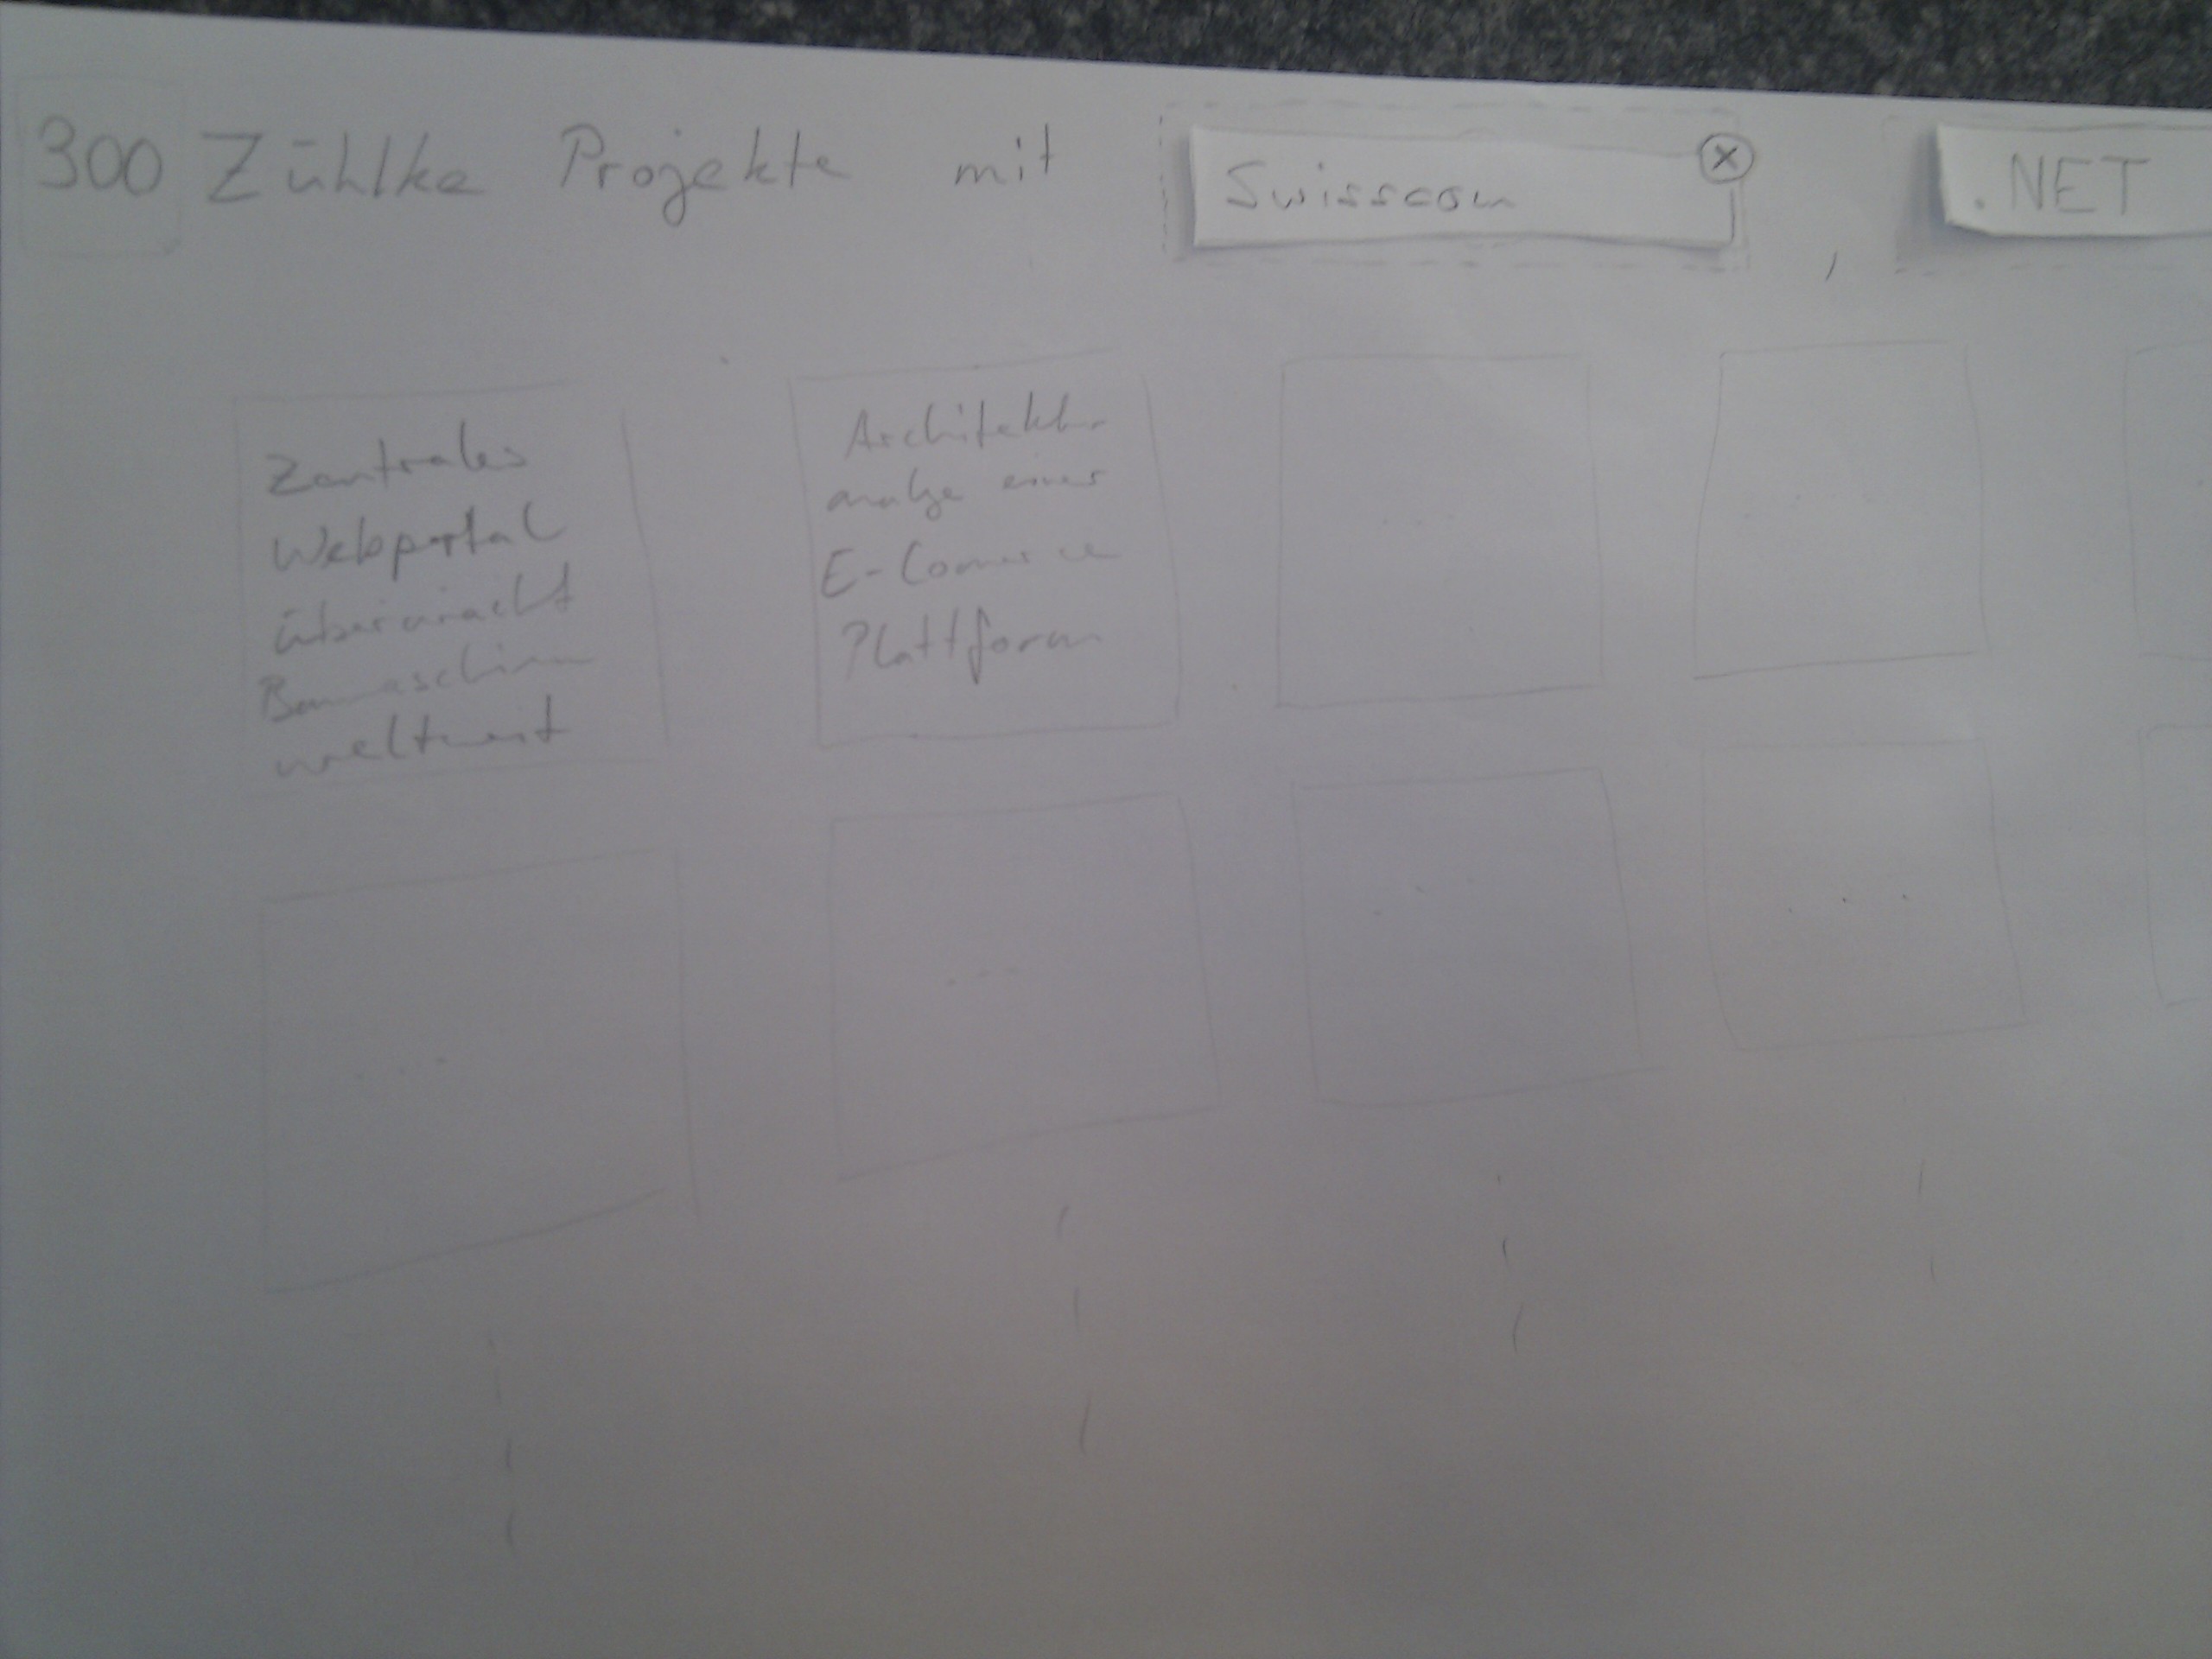 300 Zühlke Projekte mit Swisscom ⓧ , .NET
Zentrales
Webportal
überwacht
Baumaschinen
weltweit
Architektur
analyse einer
E-Commerce
Plattform
...
...
...
...
...